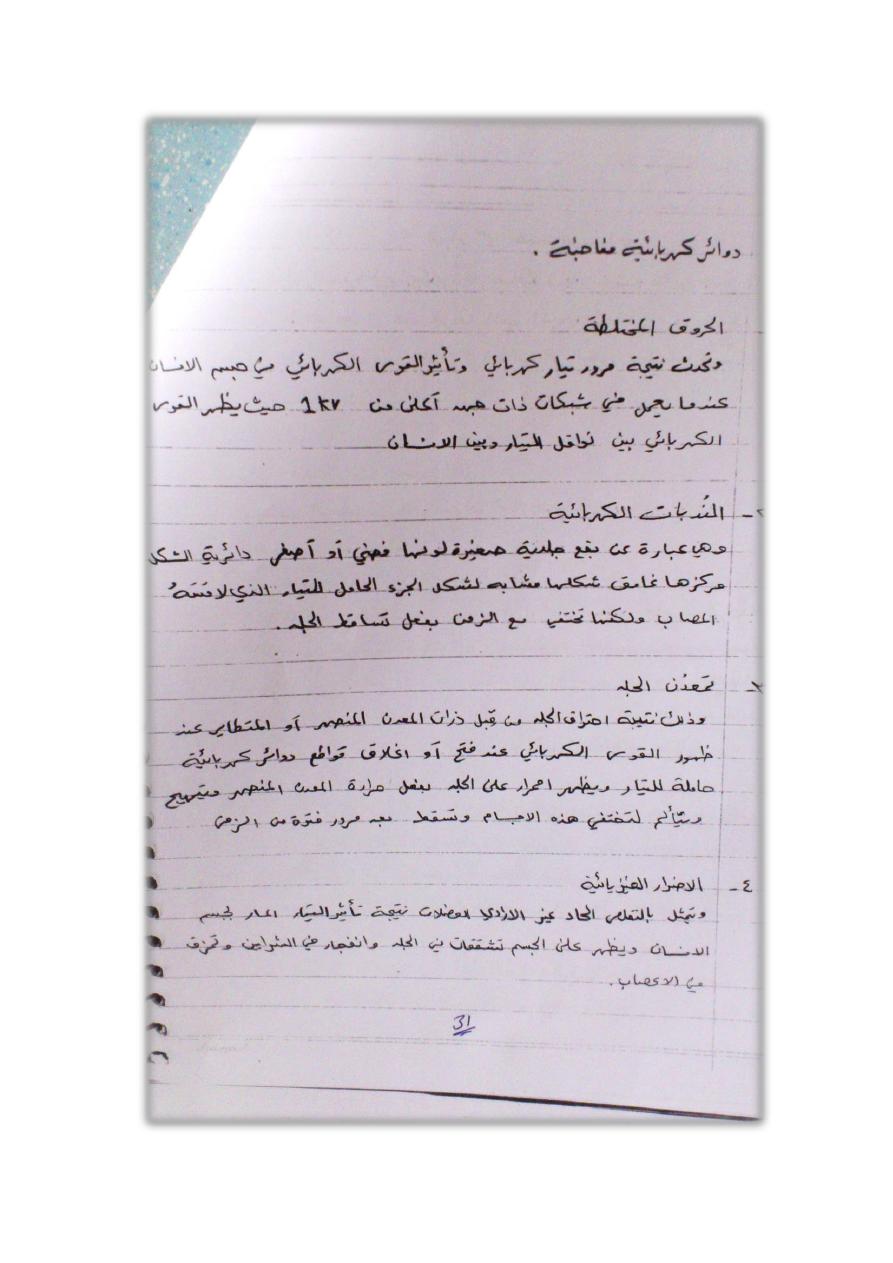 دوائر كهربائية مفاجئة .
الحروق المختلطة
وتحدث نتيجة مرور تيار كهربائي وتأثير القوس الكهربائي في جسم الانسان
عندما يعمل في شبكات ذات جهد أعلى من 1kv حيث يظهر القوس
الكهربائي بين نواقل التيار وبين الانسان
٢- النُدبات الكهربائية
وهي عبارة عن بقع جلدية صغيرة لونها فضي أو أصفر دائرية الشكل
مركزها غامق شكلها مشابه لشكل الجزء الحامل للتيار الذي لامَسَهُ
المصاب ولكنها تختفي مع الزمن بفعل تساقط الجلد .
٣- تمَعدُن الجلد
وذلك نتيجة احتراق الجلد من قِبل ذرات المعدن المنصهر أو المتطاير عند
ظهور القوس الكهربائي عند فتح أو اغلاق قواطع دوائر كهربائية
حاملة للتيار ويظهر احمرار على الجلد بفعل حرارة المعدن المنصهر ويتهيج
ويتألم لتختفي هذه الاجسام وتسقط بعد مرور فترة من الزمن
٤- الاضرار الفيزيائية
وتتمثل بالتقلص الحاد غير الارادي للعضلات نتيجة تأثير التيار المار بجسم
الانسان ويظهر على الجسم تشققات في الجلد وانفجار في الشرايين وتمزق
في الاعصاب .
31